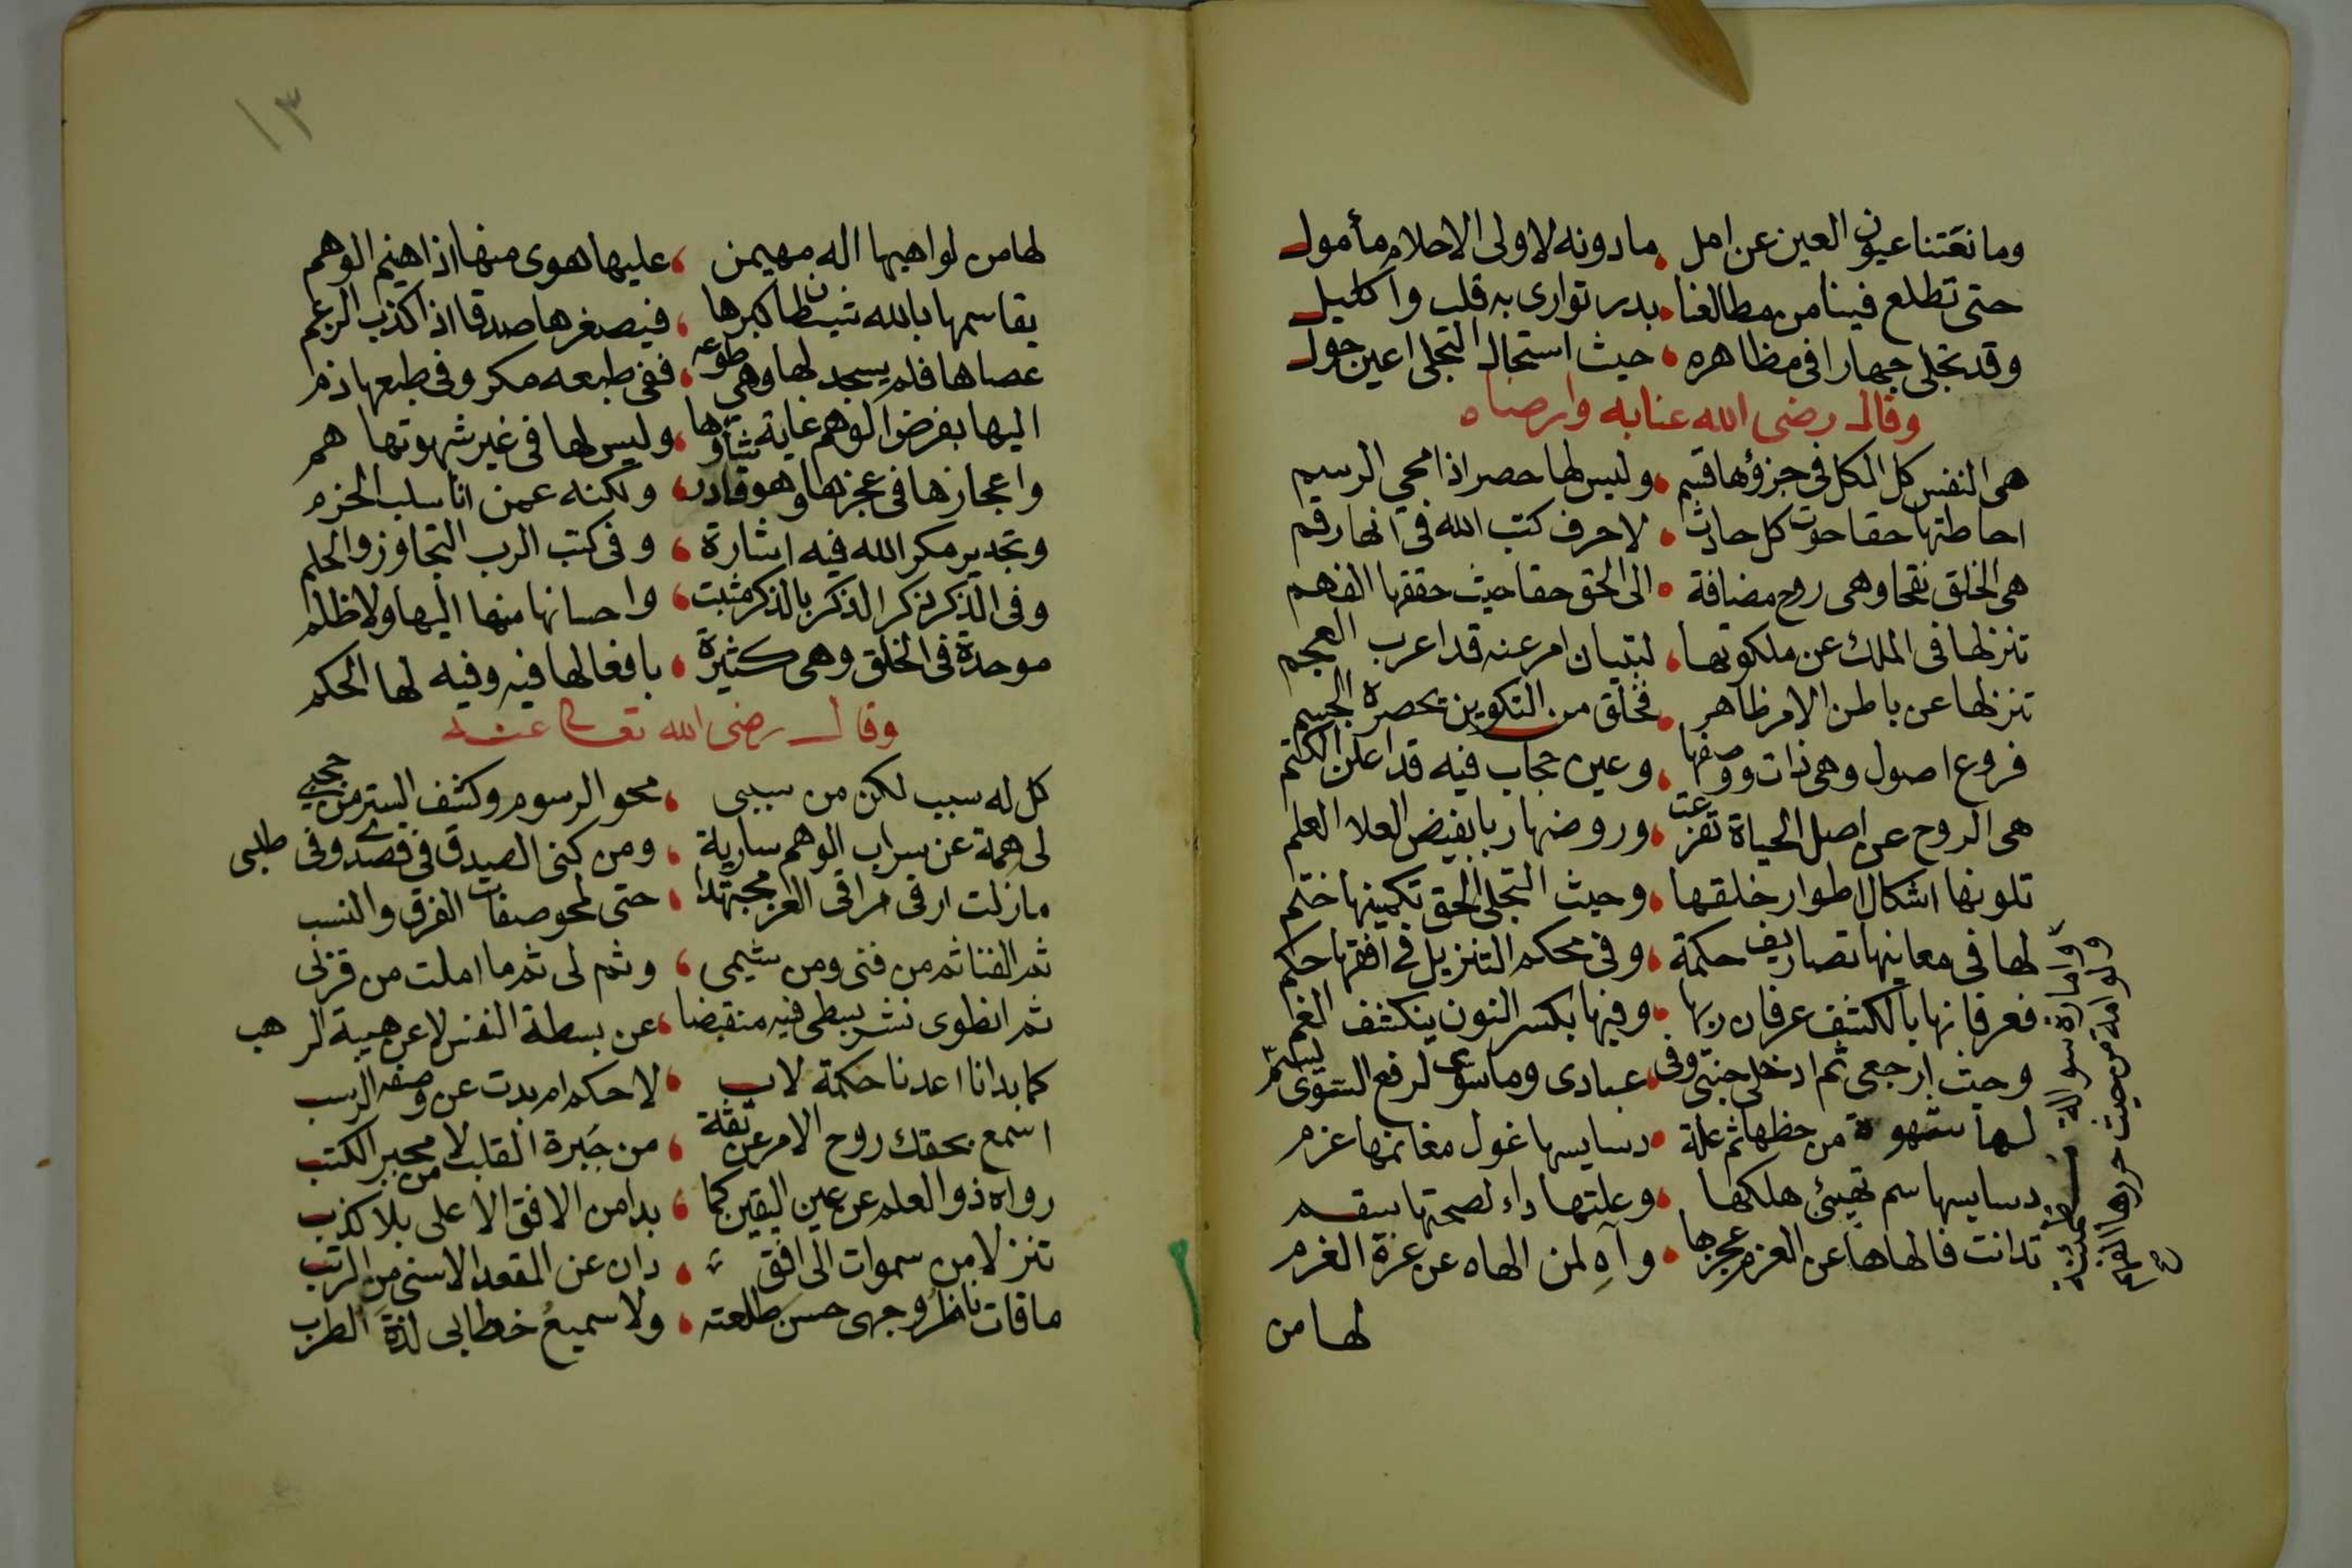 وما نعتنا عيون العين عن امل ما دونه لاولى الاحلام مأمول
حتى تطلع فينا من مطالعنا بدر توارى به قلب واكليل
وقد تجلى جهارا فى مظاهره حيث استحال التجلى اعين حول
وقال رضى الله عنا به وارضاه
هى النفس كل الكل فى جزؤها قسم وليس لها حصر اذا محي الرسم
احاطتها حقا حوت كل حادث لاحرف كتب الله فى انها رقم
هى الخلق نفخا وهى روح مضافة الى الحق حقا حيث حققها الفهم
تنزلها فى الملك عن ملكوتها لتبيان امر عنه قد اعرب العجم
تنزلها عن باطن الامر ظاهر فخلق من التكوين يحصره الجسم
فروع اصول وهى ذات ووصفها وعين حجاب فيه قد اعلن الكتم
هى الروح عن اصل الحياة تفرعت وروضها ربا بفيض العلا العلم
تلونها اشكال اطوار خلقها وحيث التجلى الحق تكمينها ختم
لها فى معانيها تصاريف حكمة وفى محكم التنزيل فى افقها حكم
فعرفانها بالكشف عرفان ربها وفيها بكسر النون ينكشف الغم
وحيث ارجعى ثم ادخلى جنتى وفى عبادى وما سوى لرفع السوى
لها شهوة من حظها ثم علة دسايسها غول مغانمها غرم
دسايسها سم تهيئ هلكها وعلتها داء لصحتها سقم
تدانت فالهاها عن العزم عجزها وآه لمن الهاه عن عزة الغرم
وامارة سوالة مطمئنة
ولوامة من حيث حررها
لها من
١٣
لها من لواهيها اله مهيمن عليها هوى منها اذا هيم الوهم
يقاسمها بالله شيطان كبرها فيصغرها صدقا اذا كذب الزعم
عصاها فلم يسجد لها وهى طوعه ففى طبعه مكر وفى طبعها ذم
اليها بفرض الوهم غاية شأوها وليس لها فى غير شهوتها هم
واعجازها فى عجزها وهو قادر ولكنه عمن انا سلب الحزم
وتحدير مكر الله فيه اشارة وفى كتب الرب التجاوز والحلم
وفى الذكر ذكر الذكر بالذكر مثبت واحسانها منها اليها ولا ظلم
موحدة فى الخلق وهى كثيرة بافعالها فيه وفيه لها الحكم
وقال رضى الله تعالى عنه
كل له سبب لكن من سببى محو الرسوم وكشف الستر من حجبى
لى همة عن سراب الوهم سارية ومن كنى الصدق فى قصدى وفى طلبى
مازلت ارقى مراقى العز مجتهدا حتى لمحو صفات الفرق والنسب
ثم الفنا ثم من فنى ومن شيمى وثم لى ثم ما املت من قربى
ثم انطوى نشر بسطى فيه منقبضا عن بسطة النفس لا عن هيبة الرهب
كما بدانا اعدنا حكمة لاب لا حكم امر بدت عن وصفه الرسب
اسمع بحقك روح الامر عن ثقة من حبرة القلب لا من محبر الكتب
رواه ذو العلم عن عين اليقين كما بدا من الافق الاعلى بلا كذب
تنزلا من سموات الى افق دان عن المقعد الاسنى من الرتب
ما فات ناظر وجهى حسن طلعته ولا سميع خطابى لذة الطرب